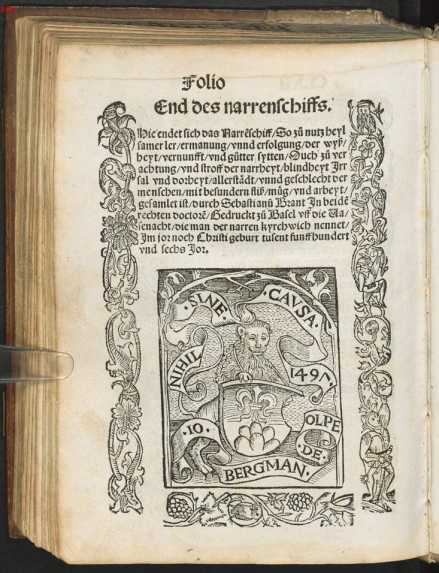 Folio
End des narrenschiffs.
Hie endet sich das Narrēschiff/So zů nutz heyl
samer ler/ermanung/vnnd erfolgung/der wyß-
heyt/vernunfft/vnd gůtter sytten/Ouch zů ver
achtung/vnd stroff der narrheyt/blindheyt Irr
sal vnd dorheyt/allerstådt/vnnd geschlecht der
menschen/mit besundern flyß/můg/vnd arbeyt/
gesamlet ist/durch Sebastianū Brant In beidē
rechten doctorē/Gedruckt zů Basel vff die Va-
senacht/die man der narren kyrchwich nennet/
Im jor noch Christi geburt tusent funffhundert
vnd sechs Jor.
·SINE· CAVSA·
NIHIL 1497.
·IO· OLPE
·DE·
BERGMAN·